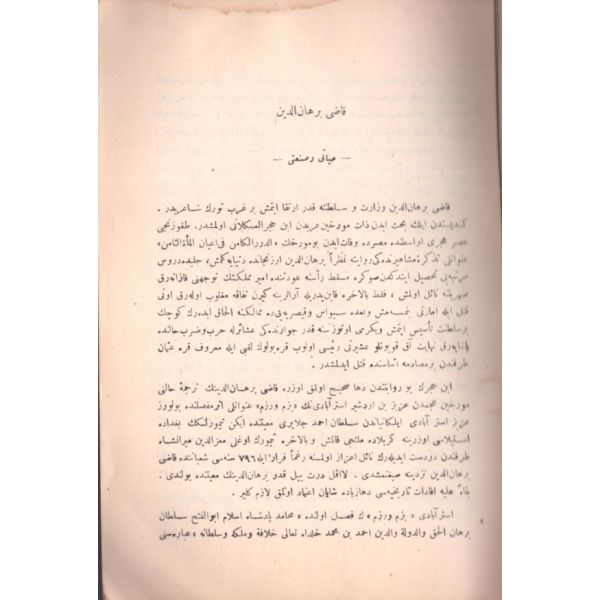 قاضی برهان‌الدین
— حیاتی و صنعتی —
قاضی برهان‌الدین وزارت و سلطنته قدر ارتقا ایتمش بر غریب تورك شاعریدر .
کندیسندن ایلك بحث ایدن ذات مورخین عربدن ابن حجر العسقلانی اولمشدر. طقوزنجی
عصر هجری اواسطنده مصرده وفات ایدن بو مورخك «الدرر الکامن فی اعیان المأة الثامن»
عنوانی تذکرهٔ مشاهیرنده‌کی روایته نظراً برهان‌الدین ارزنجانده دنیایه کلمش، حلبده دروس
مرتبه‌یی تحصیل ایتدکدن صوکره مسقط رأسنه عودتنده امیر مملکتك توجهنی قازانه‌رق
صهریتنه نائل اولمش ، فقط بالاخره قاین‌پدریله آرالرینه کیرن نفاقه مغلوب اوله‌رق اونی
قتل ایله امارتی بنمسه‌مش وبعده سیواس وقیصریه‌یی ده ممالکنه الحاق ایده‌رك کوچك
بر سلطنت تأسیس ایتمش ویکرمی اوتوز سنه قدر جوارنده‌کی عشائرله حرب وضرب حالنده
یاشایه‌رق نهایت آق قویونلو عشیرتی رئیسی اولوب قره یولوك لقبی ایله معروف قره عثمان
طرفندن بر مصادمه اثناسنده قتل ایدلمشدر .
ابن حجرك بو روایتندن دها صحیح اولمق اوزره قاضی برهان‌الدینك ترجمهٔ حالنی
مورخین عجمدن عزیز بن اردشیر استرآبادی‌نك «بزم ورزم» عنوانلی اثر مفصلنده بولورز
عزیز استرآبادی ایلکانیاندن سلطان احمد جلایری معیتنده ایکن تیمورلنكك بغداده
استیلاسی اوزرینه کربلاده ملتجی قالمش و بالاخره تیمورك اوغلی معزالدین میرانشاه
طرفندن دردست ایدیله‌رك نائل اعزاز اولمسنه رغماً فرار ایله ۷۹۶ سنه‌سی شعباننده قاضی
برهان‌الدین نزدینه صیغنمشدی . لااقل درت ییل قدر برهان‌الدینك معیتنده بولندی .
بناءً علیه افادات تاریخیه‌سی دها زیاده شایان اعتماد اولمق لازم کلیر .
استرآبادی «بزم ورزم» ك فصل اولنده « محامد پادشاه اسلام ابوالفتح سلطان
برهان الحق والدولة والدین احمد بن محمد خلدالله تعالی خلافة وملکه وسلطانه » عباره‌سنی